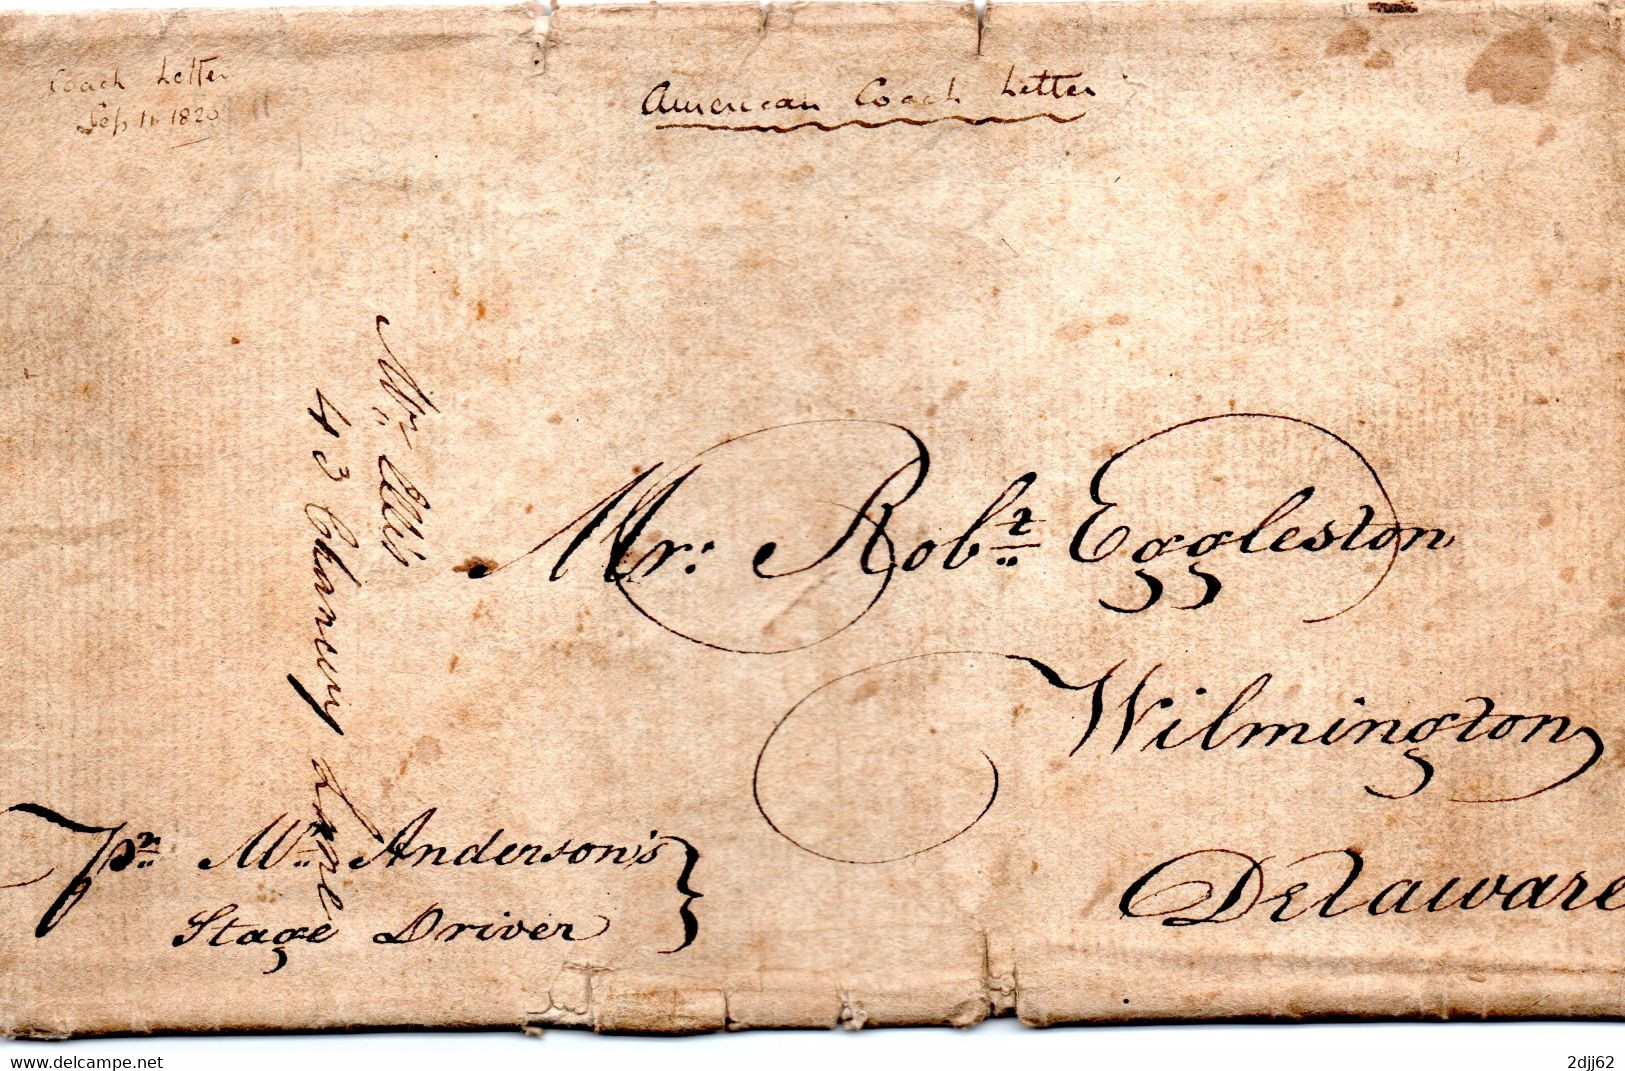 Coach Letter
Sep 11 1820
American Coach Letter
Mr. Ellis
43 Chancery Lane
Mr: Robt Eggleston
Wilmington
Delaware
pr Mr Anderson's
Stage Driver
delcampe.net
2djj62